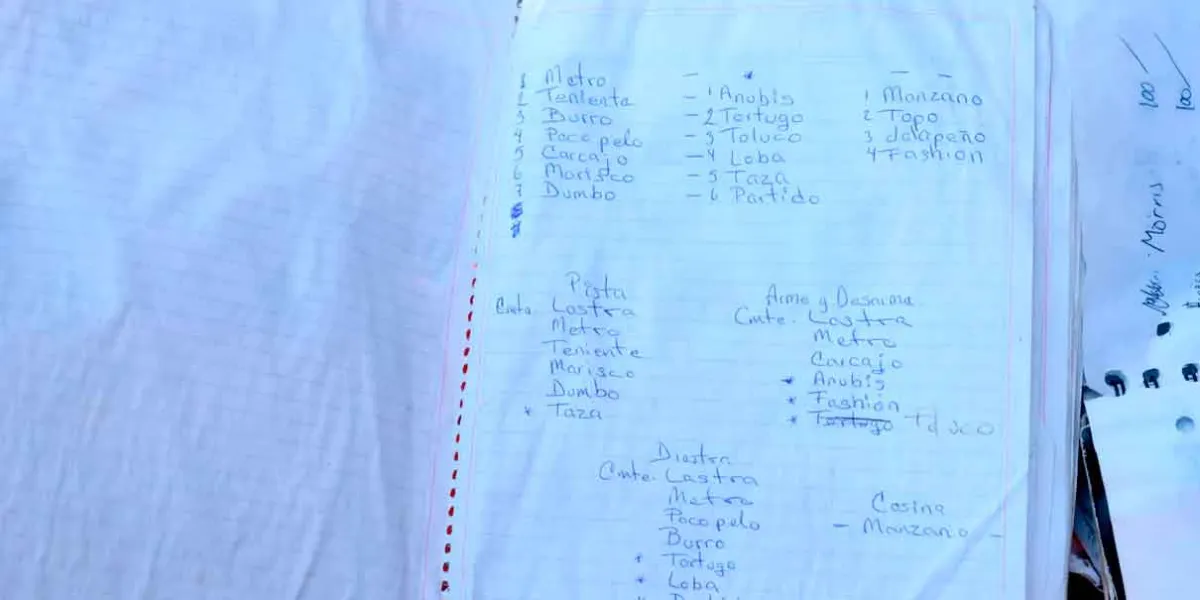 1 Metro
2 Tenienta
3 Burro
4 Poco pelo
5 Carcajo
6 Marisco
7 Dumbo
- 1 Anubis
- 2 Tortugo
- 3 Toluco
- 4 Loba
- 5 Taza
- 6 Partido
1 Manzano
2 Topo
3 Jalapeño
4 Fashion
Pista
Cmte. Lastra
Metro
Teniente
Marisco
Dumbo
* Taza
Arme y Desarme
Cmte. Lastra
Metro
Carcajo
* Anubis
* Fashion
* Tortugo Toluco
Diestra
Cmte. Lastra
Metro
Poco pelo
Burro
* Tortugo
* Loba
Cosina
- Manzano -
Morris
100
100